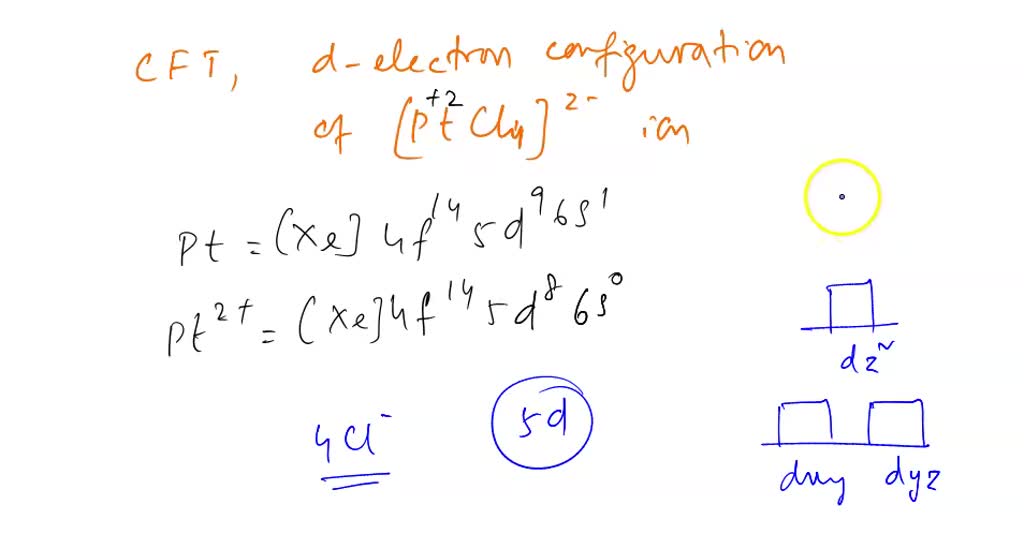 CFT, d-electron configuration
of [Pt Cl4]2- ion
+2
Pt = [Xe] 4f14 5d9 6s1
Pt2+ = [Xe] 4f14 5d8 6s0
4Cl-
5d
dz2
dxy dyz